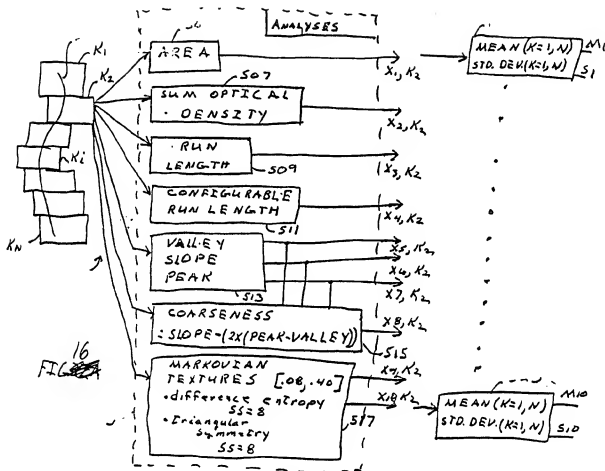 ANALYSES
K1
AREA
X1, K2
MEAN (K=1, N)
STD. DEV. (K=1, N)
S1
K2
507
SUM OPTICAL
DENSITY
X2, K2
RUN
LENGTH
509
X3, K2
Ki
CONFIGURABLE
RUN LENGTH
511
X4, K2
KN
VALLEY
SLOPE
PEAK
513
X5, K2
X6, K2
X7, K2
COARSENESS
: SLOPE-(2X(PEAK-VALLEY))
515
X8, K2
FIG
16
MARKOVIAN
TEXTURES [.08, .40]
• difference entropy
SS=8
• triangular
symmetry
SS=8
517
X9, K2
X10, K2
MEAN (K=1, N)
STD. DEV. (K=1, N)
M10
S10